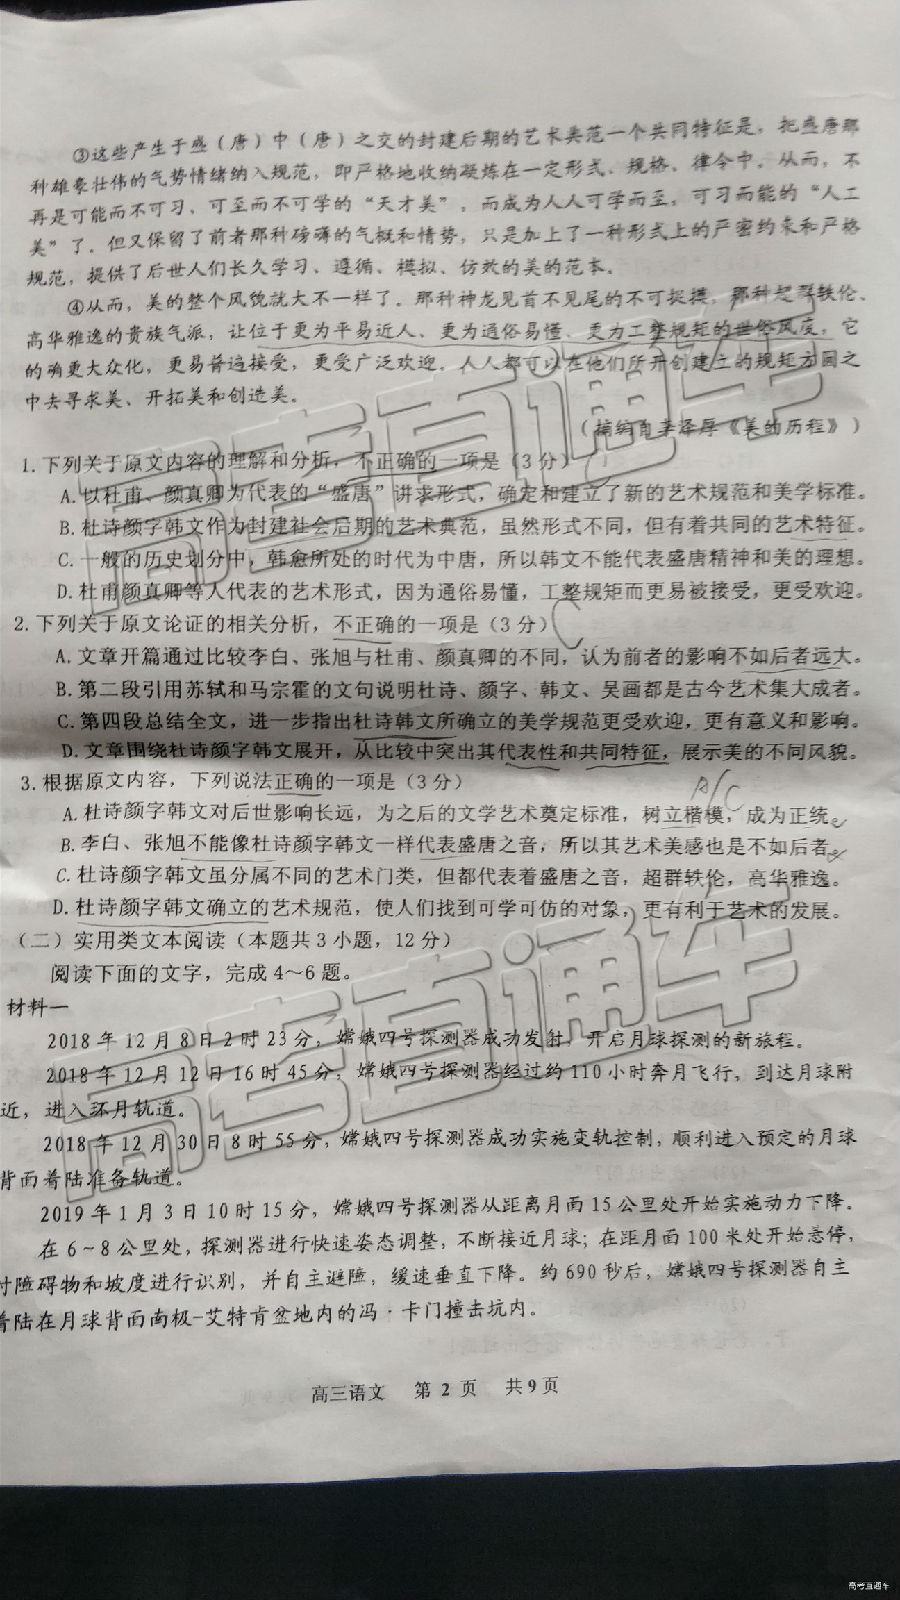 ③这些产生于盛（唐）中（唐）之交的封建后期的艺术典范一个共同特征是，把盛唐那
种雄豪壮伟的气势情绪纳入规范，即严格地收纳凝炼在一定形式、规格、律令中。从而，不
再是可能而不可习、可至而不可学的“天才美”，而成为人人可学而至，可习而能的“人工
美”了。但又保留了前者那种磅礴的气概和情势，只是加上了一种形式上的严密约束和严格
规范，提供了后世人们长久学习、遵循、模拟、仿效的美的范本。
④从而，美的整个风貌就大不一样了。那种神龙见首不见尾的不可捉摸，那种超群轶伦、
高华雅逸的贵族气派，让位于更为平易近人、更为通俗易懂、更为工整规矩的世俗风度，它
的确更大众化，更易普遍接受，更受广泛欢迎。人人都可以在他们所开创建立的规矩方圆之
中去寻求美、开拓美和创造美。
（摘编自李泽厚《美的历程》）
1.下列关于原文内容的理解和分析，不正确的一项是（3分）
A.以杜甫、颜真卿为代表的“盛唐”讲求形式，确定和建立了新的艺术规范和美学标准。
B.杜诗颜字韩文作为封建社会后期的艺术典范，虽然形式不同，但有着共同的艺术特征。
C.一般的历史划分中，韩愈所处的时代为中唐，所以韩文不能代表盛唐精神和美的理想。
D.杜甫颜真卿等人代表的艺术形式，因为通俗易懂，工整规矩而更易被接受，更受欢迎。
2.下列关于原文论证的相关分析，不正确的一项是（3分）
A.文章开篇通过比较李白、张旭与杜甫、颜真卿的不同，认为前者的影响不如后者远大。
B.第二段引用苏轼和马宗霍的文句说明杜诗、颜字、韩文、吴画都是古今艺术集大成者。
C.第四段总结全文，进一步指出杜诗韩文所确立的美学规范更受欢迎，更有意义和影响。
D.文章围绕杜诗颜字韩文展开，从比较中突出其代表性和共同特征，展示美的不同风貌。
3.根据原文内容，下列说法正确的一项是（3分）
A.杜诗颜字韩文对后世影响长远，为之后的文学艺术奠定标准，树立楷模，成为正统。
B.李白、张旭不能像杜诗颜字韩文一样代表盛唐之音，所以其艺术美感也是不如后者。
C.杜诗颜字韩文虽分属不同的艺术门类，但都代表着盛唐之音，超群轶伦，高华雅逸。
D.杜诗颜字韩文确立的艺术规范，使人们找到可学可仿的对象，更有利于艺术的发展。
（二）实用类文本阅读（本题共3小题，12分）
阅读下面的文字，完成4～6题。
材料一
2018年12月8日2时23分，嫦娥四号探测器成功发射，开启月球探测的新旅程。
2018年12月12日16时45分，嫦娥四号探测器经过约110小时奔月飞行，到达月球附
近，进入环月轨道。
2018年12月30日8时55分，嫦娥四号探测器成功实施变轨控制，顺利进入预定的月球
背面着陆准备轨道。
2019年1月3日10时15分，嫦娥四号探测器从距离月面15公里处开始实施动力下降。
在6～8公里处，探测器进行快速姿态调整，不断接近月球；在距月面100米处开始悬停，
对障碍物和坡度进行识别，并自主避障，缓速垂直下降。约690秒后，嫦娥四号探测器自主
着陆在月球背面南极-艾特肯盆地内的冯·卡门撞击坑内。
高三语文 第2页 共9页
高考直通车
高考直通车
高考直通车